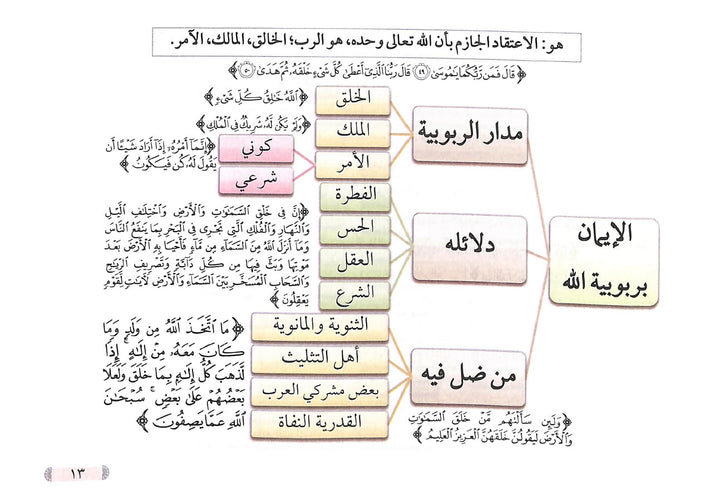 هو: الاعتقاد الجازم بأن الله تعالى وحده، هو الرب؛ الخالق، المالك، الآمر.
﴿قَالَ فَمَن رَّبُّكُمَا يَٰمُوسَىٰ ٤٩ قَالَ رَبُّنَا ٱلَّذِىٓ أَعْطَىٰ كُلَّ شَىْءٍ خَلْقَهُۥ ثُمَّ هَدَىٰ ٥٠﴾
الإيمان
بربوبية الله
مدار الربوبية
الخلق
﴿ٱللَّهُ خَٰلِقُ كُلِّ شَىْءٍ﴾
الملك
﴿وَلَمْ يَكُن لَّهُۥ شَرِيكٌ فِى ٱلْمُلْكِ﴾
الأمر
كوني
شرعي
﴿إِنَّمَآ أَمْرُهُۥٓ إِذَآ أَرَادَ شَيْـًٔا أَن
يَقُولَ لَهُۥ كُن فَيَكُونُ﴾
دلائله
الفطرة
الحس
العقل
الشرع
﴿إِنَّ فِى خَلْقِ ٱلسَّمَٰوَٰتِ وَٱلْأَرْضِ وَٱخْتِلَٰفِ ٱلَّيْلِ
وَٱلنَّهَارِ وَٱلْفُلْكِ ٱلَّتِى تَجْرِى فِى ٱلْبَحْرِ بِمَا يَنفَعُ ٱلنَّاسَ
وَمَآ أَنزَلَ ٱللَّهُ مِنَ ٱلسَّمَآءِ مِن مَّآءٍ فَأَحْيَا بِهِ ٱلْأَرْضَ بَعْدَ
مَوْتِهَا وَبَثَّ فِيهَا مِن كُلِّ دَآبَّةٍ وَتَصْرِيفِ ٱلرِّيَٰحِ
وَٱلسَّحَابِ ٱلْمُسَخَّرِ بَيْنَ ٱلسَّمَآءِ وَٱلْأَرْضِ لَءَايَٰتٍ لِّقَوْمٍ
يَعْقِلُونَ﴾
من ضل فيه
الثنوية والمانوية
أهل التثليث
بعض مشركي العرب
القدرية النفاة
﴿مَا ٱتَّخَذَ ٱللَّهُ مِن وَلَدٍ وَمَا
كَانَ مَعَهُۥ مِنْ إِلَٰهٍ إِذًا
لَّذَهَبَ كُلُّ إِلَٰهٍۭ بِمَا خَلَقَ وَلَعَلَا
بَعْضُهُمْ عَلَىٰ بَعْضٍ سُبْحَٰنَ
ٱللَّهِ عَمَّا يَصِفُونَ﴾
﴿وَلَئِن سَأَلْتَهُم مَّنْ خَلَقَ ٱلسَّمَٰوَٰتِ
وَٱلْأَرْضَ لَيَقُولُنَّ خَلَقَهُنَّ ٱلْعَزِيزُ ٱلْعَلِيمُ﴾
١٣